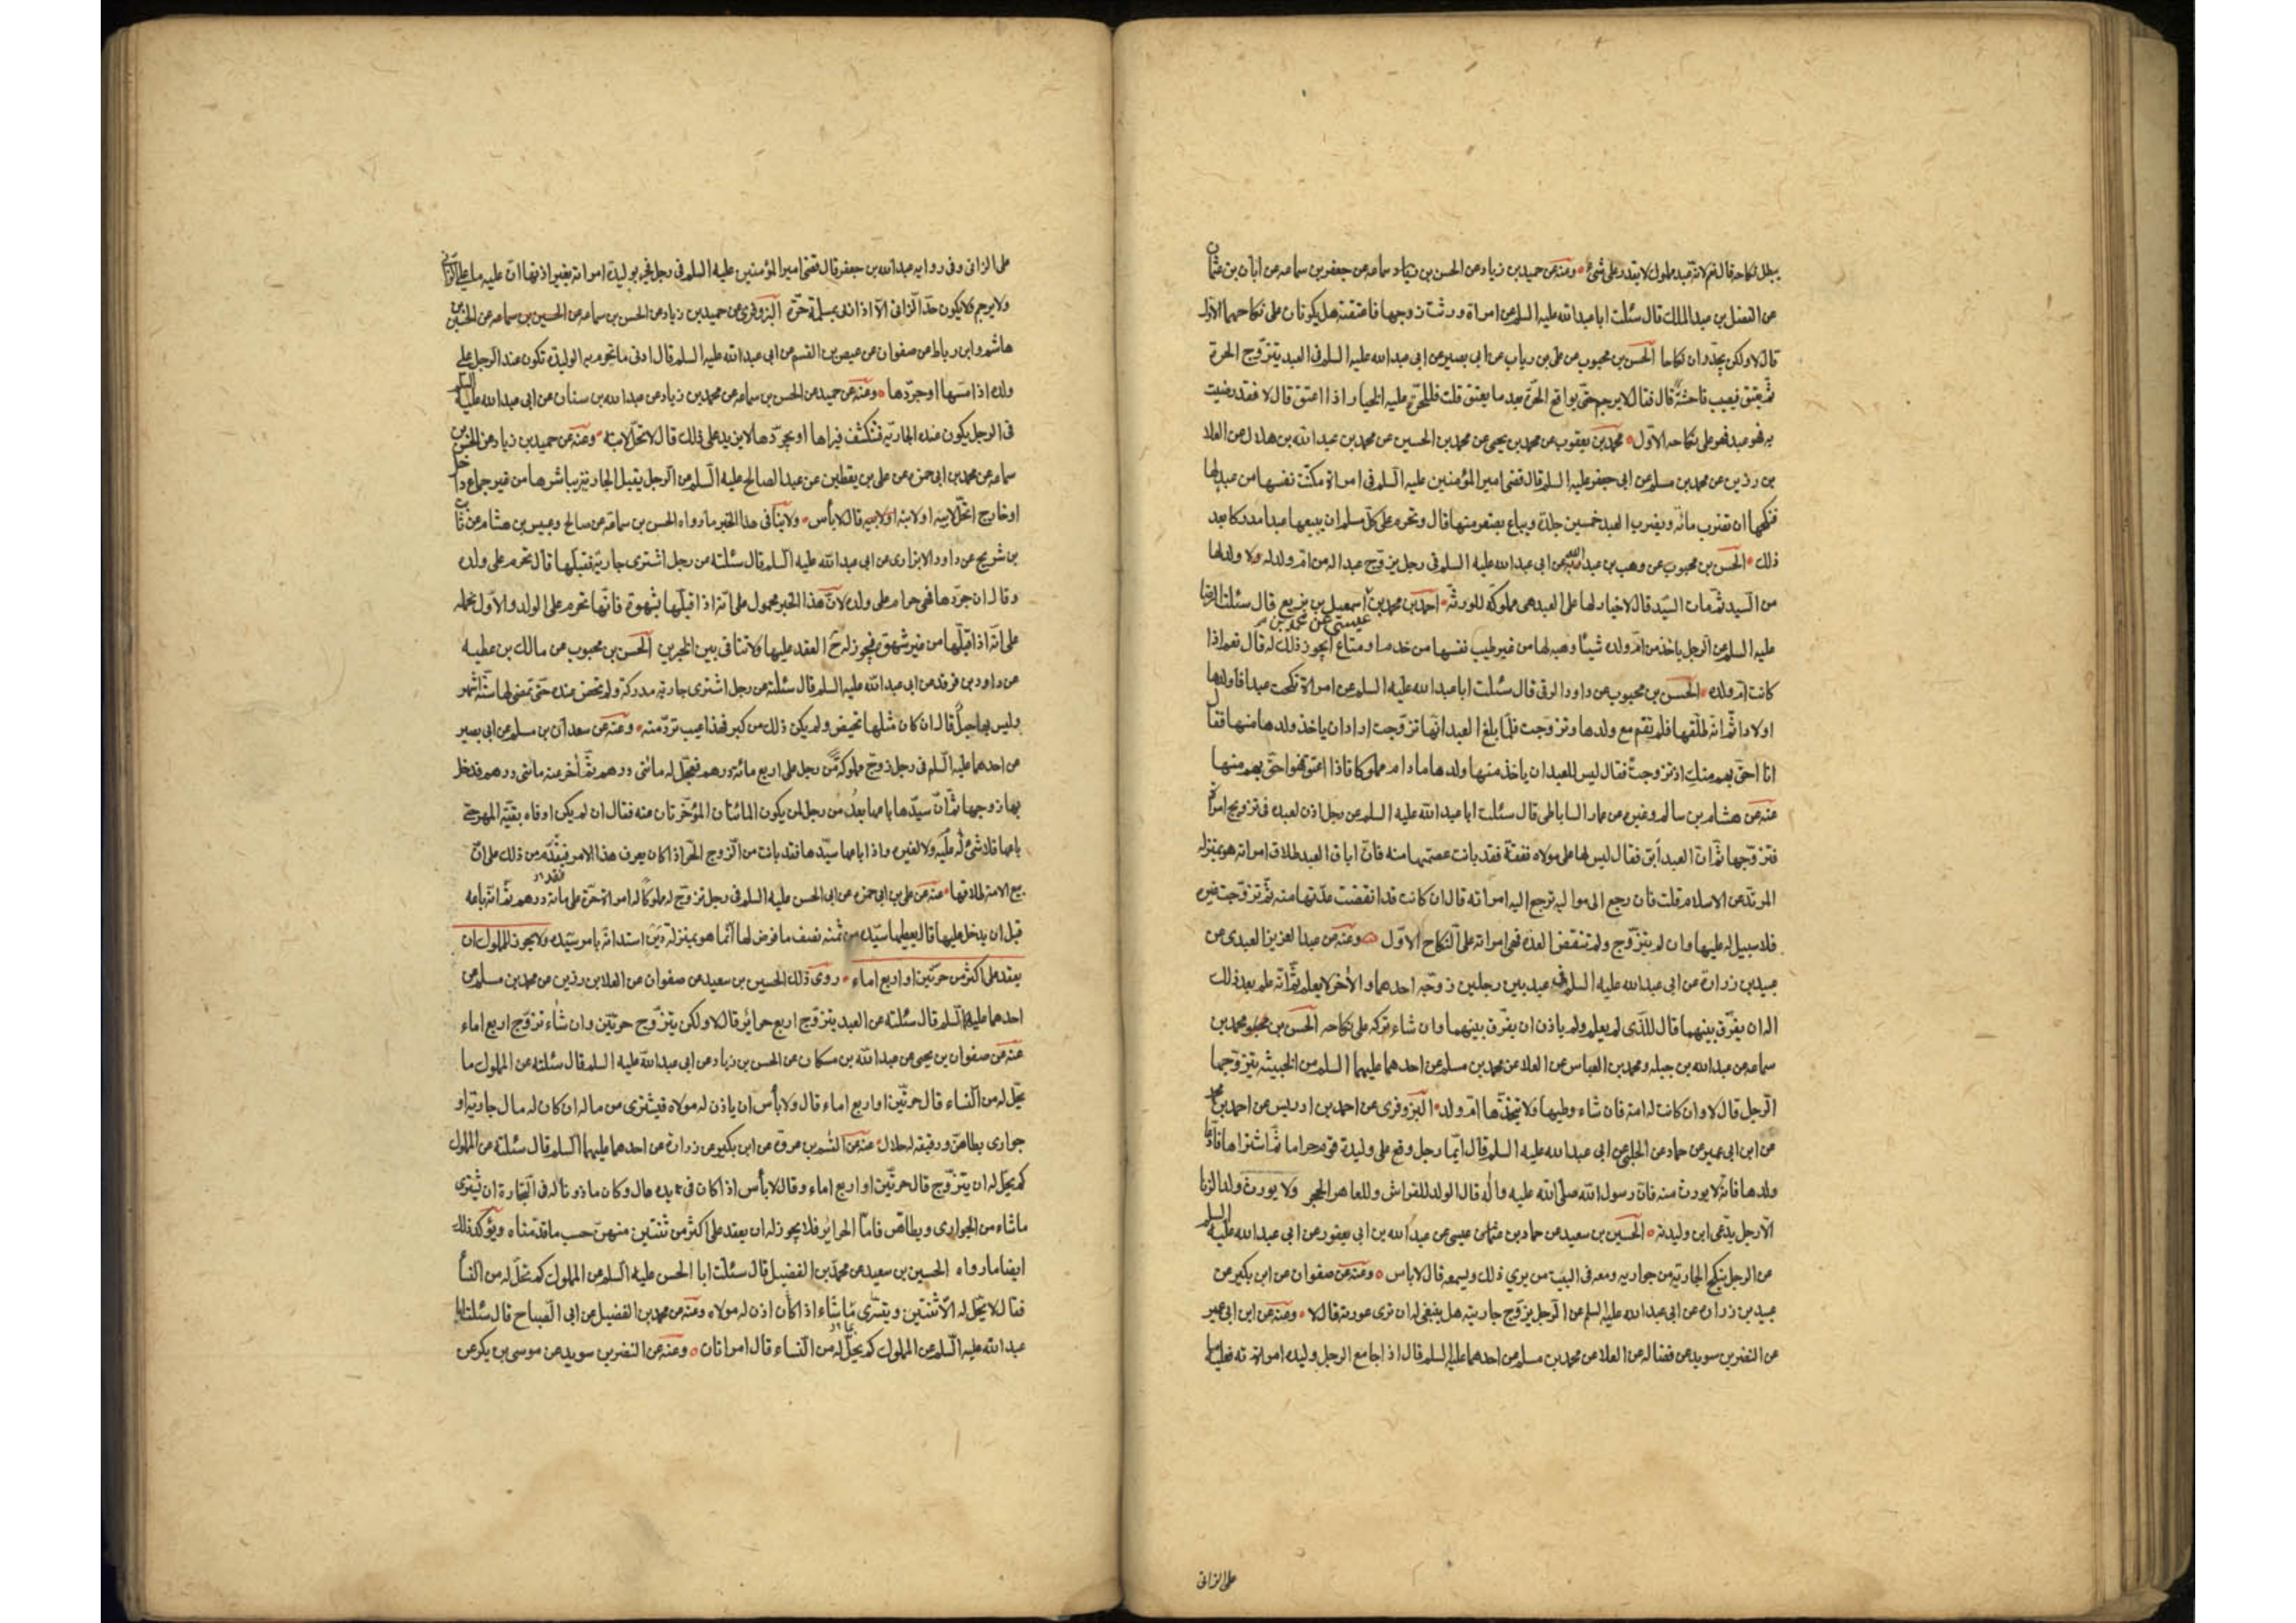 يبطل نكاحه قال نعم لانه عبد مملوك لا يقدر على شئ ومنه عن حميد بن زياد عن الحسن بن زياد سماعه عن جعفر بن سماعه عن ابان بن عثمان
عن الفضل بن عبد الملك قال سئلت ابا عبد الله عليه السلم عن امراة ورثت زوجها فاعتقته هل يكونان على نكاحهما الاول
قال لا ولكن يجددان نكاحا الحسن بن محبوب عن علي بن رياب عن ابي بصير عن ابي عبد الله عليه السلم في العبد يتزوج الحرة
ثم يعتق فيصيب فاحشة قال فقال لا يرجم حتى يواقع الحرة بعد ما يعتق قلت فللحرة عليه الخيار اذا اعتق قال لا فقد رضيت
به فهو عبد فهو على نكاحه الاول محمد بن يعقوب عن محمد بن يحيى عن محمد بن الحسين عن محمد بن عبد الله بن هلال عن العلا
بن رزين عن محمد بن مسلم عن ابي جعفر عليه السلم قال قضى امير المؤمنين عليه السلم في امراة مكنت نفسها من عبد لها
فنكحها ان تضرب مائة ويضرب العبد خمسين جلدة ويباع بصغر منها قال ويحرم على كل مسلم ان يبيعها عبدا مدركا بعد
ذلك الحسن بن محبوب عن وهب بن عبد ربه عن ابي عبد الله عليه السلم في رجل يزوج عبدا له من ام ولد له ولا ولد لها
من السيد ثم مات السيد قال لا خيار لها على العبد هي مملوكة للورثة احمد بن محمد بن عيسى عن محمد بن اسمعيل بن بزيع قال سئلت الرضا
عليه السلم عن الرجل ياخذ من ام ولده شيئا وهبه لها من غير طيب نفسها من خدم او متاع ايجوز ذلك له قال نعم اذا
كانت ام ولده الحسن بن محبوب عن داود الرقي قال سئلت ابا عبد الله عليه السلم عن امراة نكحت عبدا فاولدها
اولادا ثم انه طلقها فلم تقم مع ولدها وتزوجت فلما بلغ العبد انها تزوجت اراد ان ياخذ ولدها منها فقال
انا احق بهم منك اذ تزوجت فقال ليس للعبد ان ياخذ منها ولدها ما دام مملوكا فاذا اعتق فهو احق بهم منها
عنه عن هشام بن سالم وغيره عن عمار الساباطي قال سئلت ابا عبد الله عليه السلم عن رجل اذن لعبده في تزويج امراة
فتزوجها ثم ان العبد ابق فقال ليس لها على مولاه نفقة فقد بانت عصمتها منه فان اباق العبد طلاق امراته هو بمنزلة
المرتد عن الاسلام قلت فان رجع الى مواليه ترجع اليه امراته قال ان كانت قد انقضت عدتها منه ثم تزوجت غيره
فلا سبيل له عليها وان لم يتزوج ولم تنقض العدة فهي امراته على النكاح الاول ومنه عن عبد العزيز العبدي عن
عبيد بن زرارة عن ابي عبد الله عليه السلم في عبد بين رجلين زوجه احدهما والاخر لا يعلم ثم انه علم بعد ذلك
اله ان يفرق بينهما قال للذي لم يعلم ولم ياذن ان يفرق بينهما وان شاء تركه على نكاحه الحسن بن محمد بن
سماعه عن عبد الله بن جبله ومحمد بن العباس عن العلا عن محمد بن مسلم عن احدهما عليهما السلم عن الخبيثه يتزوجها
الرجل قال لا وان كانت له امة فان شاء وطيها ولا يتخذها ام ولد البزوفري عن احمد بن ادريس عن احمد بن محمد
عن ابن ابي عمير عن حماد عن الحلبي عن ابي عبد الله عليه السلم قال ايما رجل وقع على وليدة قوم حراما ثم اشتراها فادعا
ولدها فانه لا يورث منه فان رسول الله صلى الله عليه واله قال الولد للفراش وللعاهر الحجر ولا يورث ولد الزنا
الا رجل يدعى ابن وليدته الحسين بن سعيد عن حماد بن عثمان عيسى عن عبد الله بن ابي يعفور عن ابي عبد الله عليه السلم
عن الرجل ينكح الجارية من جواريه ومعه في البيت من يري ذلك ويسمعه قال لا باس ومنه عن صفوان عن ابن بكير عن
عبيد بن زراره عن ابي عبد الله عليه السلم عن الرجل يزوج جاريته هل ينبغي له ان ترى عورته قال لا ومنه عن ابن ابي عمير
عن النضر بن سويد عن فضاله عن العلا عن محمد بن مسلم عن احدهما عليه السلم قال اذا جامع الرجل وليدة امراته فعليه ما
على الزاني
على الزاني وفي رواية عبد الله بن جعفر قال قضى امير المؤمنين عليه السلم في رجل فجر بوليدة امراته بغير اذنها ان عليه ما على الزاني
ولا يرجم ولا يكون حد الزاني الا اذا زنى بمسلمة حرة البزوفري عن حميد بن زياد عن الحسن بن سماعه عن الحسين بن سماعه عن الحسن بن
هاشم وابن رباط عن صفوان عن عيص بن القسم عن ابي عبد الله عليه السلم قال ادنى ما تحرم به الوليدة تكون عند الرجل على
ولده اذا مسها او جردها ومنه عن حميد عن الحسن بن سماعه عن محمد بن زياد عن عبد الله بن سنان عن ابي عبد الله عليه السلم
في الرجل يكون عنده الجارية فتكشف فيراها او يجردها لا يزيد على ذلك قال لا تحل لابنه ومنه عن حميد بن زياد عن الحسن بن
سماعه عن محمد بن ابي حمزه عن علي بن يقطين عن عبد الصالح عليه السلم عن الرجل يقبل الجارية يباشرها من غير جماع داخل
او خارج اتحل لابنه او لابيه قال لا بأس ولا ينافي هذا الخبر ما رواه الحسن بن سماعه عن صالح وعبيس بن هشام عن ثابت
بن شريح عن داود الابزاري عن ابي عبد الله عليه السلم قال سئلته عن رجل اشترى جارية فقبلها قال تحرم على ولده
وقال ان جردها فهي حرام على ولده لان هذا الخبر محمول على انه اذا قبلها بشهوة فانها تحرم على الولد والاول نحمله
على انه اذا قبلها من غير شهوة فيجوز له ح العقد عليها ولا تنافي بين الخبرين الحسن بن محبوب عن مالك بن عطيه
عن داود بن فرقد عن ابي عبد الله عليه السلم قال سئلته عن رجل اشترى جارية مدركة ولم تحض عنده حتى تمضى لها ستة اشهر
وليس بها حبل قال ان كان مثلها تحيض ولم يكن ذلك من كبر فهذا عيب ترد منه ومنه عن سعدان بن مسلم عن ابي بصير
عن احدهما عليه السلم في رجل زوج مملوكة من رجل على اربع مائة درهم فعجل له مائتي درهم ثم اخر عنه مائتي درهم فدخل
بها زوجها ثم ان سيدها باعها بعد من رجل لمن يكون المائتان المؤخرتان عنه فقال ان لم يكن اوفاه بقية المهر حتى
باعها فلا شئ له عليه ولا لغيره واذا باعها سيدها فقد بانت من الزوج الحر اذا كان يعرف هذا الامر فقد تقدم من ذلك على ان
بيع الامة طلاقها عنه عن علي بن ابي حمزه عن ابي الحسن عليه السلم في رجل تزوج له مملوكا له امراة حرة على مائة درهم ثم انه باعه
قبل ان يدخل عليها قال يعطيها سيده من ثمنه نصف ما فرض لها انما هو بمنزلة دين استدانه بامر سيده ولا يجوز للمملوك ان
يعقد على اكثر من حرتين او اربع اماء روى ذلك الحسين بن سعيد عن صفوان عن العلا بن رزين عن محمد بن مسلم عن
احدهما عليهما السلم قال سئلته عن العبد يتزوج اربع حرائر قال لا ولكن يتزوج حرتين وان شاء تزوج اربع اماء
عنه عن صفوان بن يحيى عن عبد الله بن مسكان عن الحسن بن زياد عن ابي عبد الله عليه السلم قال سئلته عن المملوك ما
يحل له من النساء قال حرتين او اربع اماء قال ولا بأس ان ياذن له مولاه فيشترى من ماله ان كان له مال جارية او
جواري يطاهن ورقيقه له حلال عنه عن القسم بن عروة عن ابن بكير عن زرارة عن احدهما عليهما السلم قال سئلته عن المملوك
كم يحل له ان يتزوج قال حرتين او اربع اماء وقال لا بأس اذا كان في يده مال وكان ماذونا له في التجارة ان يشترى
ما شاء من الجواري ويطاهن فاما الحرائر فلا يجوز له ان يعقد على اكثر من ثنتين منهن حسب ما قدمناه ويؤكد ذلك
ايضا ما رواه الحسين بن سعيد عن محمد بن الفضيل قال سئلت ابا الحسن عليه السلم عن المملوك كم تحل له من النساء
فقال لا يحل له الا ثنتين ويتسرى ما شاء اذا كان اذن له مولاه ومنه عن محمد بن الفضيل عن ابي الصباح قال سئلت ابا
عبد الله عليه السلم عن المملوك كم يحل له من النساء قال امراتان ومنه عن النضر بن سويد عن موسى بن بكر عن